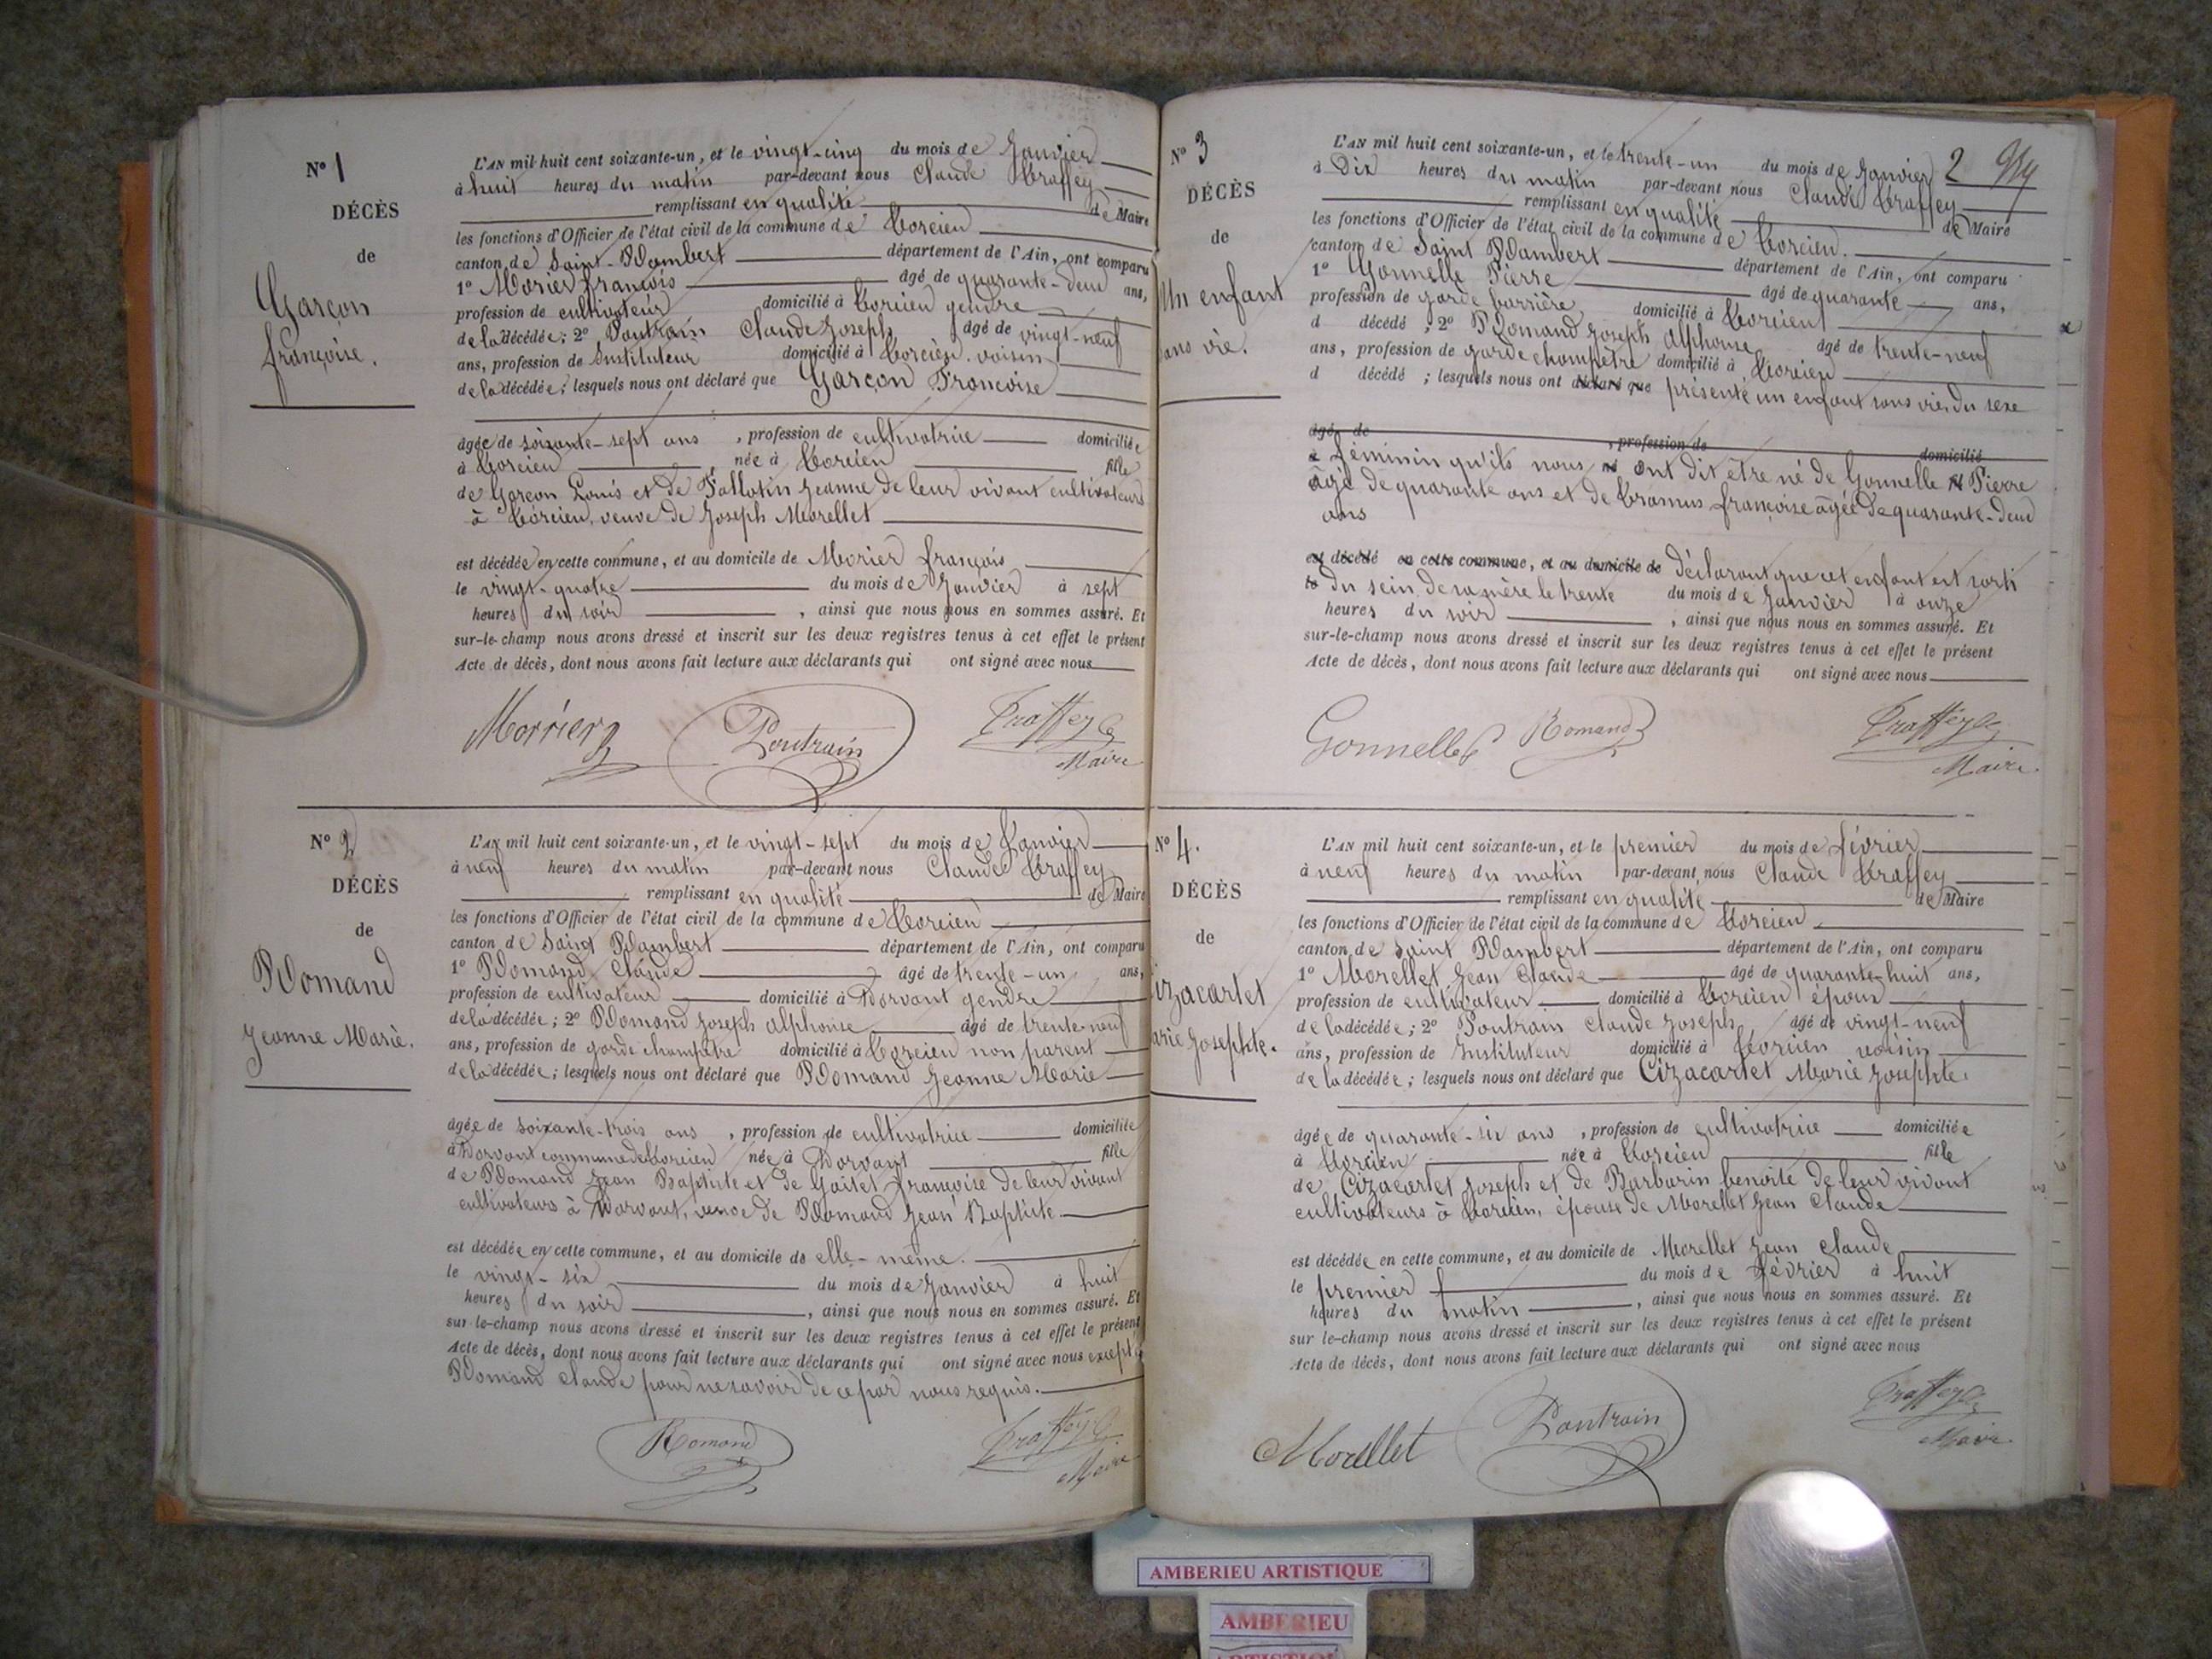 N° 1
DÉCÈS
de
Garçon
françoise.
L'AN mil huit cent soixante-un, et le vingt-cinq du mois de Janvier
à huit heures du matin par-devant nous Claude Traffey
remplissant en qualité de Maire
les fonctions d'Officier de l'état civil de la commune de Torcieu
canton de Saint-Rambert département de l'Ain, ont comparu
1° Morier françois âgé de quarante-deux ans,
profession de cultivateur domicilié à Torcieu gendre
de la décédée; 2° Poutrain Claude Joseph âgé de vingt-neuf
ans, profession de Instituteur domicilié à Torcieu voisin
de la décédée; lesquels nous ont déclaré que Garçon Françoise
âgée de soixante-sept ans, profession de cultivatrice domiciliée
à Torcieu, née à Torcieu fille
de Garçon Louis et de Jeanne de leur vivant cultivateurs
à Torcieu, veuve de Joseph Morellet
est décédée en cette commune, et au domicile de Morier françois
le vingt-quatre du mois de Janvier à sept
heures du soir, ainsi que nous nous en sommes assuré. Et
sur-le-champ nous avons dressé et inscrit sur les deux registres tenus à cet effet le présent
Acte de décès, dont nous avons fait lecture aux déclarants qui ont signé avec nous
Morrier Poutrain Traffey C
Maire
N° 2
DÉCÈS
de
Romand
Jeanne Marie.
L'AN mil huit cent soixante-un, et le vingt-sept du mois de Janvier
à neuf heures du matin par-devant nous Claude Traffey
remplissant en qualité de Maire
les fonctions d'Officier de l'état civil de la commune de Torcieu
canton de Saint Rambert département de l'Ain, ont comparu
1° Romand Claude âgé de trente-un ans,
profession de cultivateur domicilié à Dorvant gendre
de la décédée; 2° Romand Joseph alphonse âgé de trente-neuf
ans, profession de garde champêtre domicilié à Torcieu non parent
de la décédée; lesquels nous ont déclaré que Romand Jeanne Marie
âgée de soixante-trois ans, profession de cultivatrice domiciliée
à Dorvant commune de Torcieu née à Dorvant fille
de Romand Jean Baptiste et de françoise de leur vivant
cultivateurs à Dorvant, veuve de Romand Jean Baptiste
est décédée en cette commune, et au domicile de elle-même.
le vingt-six du mois de Janvier à huit
heures du soir, ainsi que nous nous en sommes assuré. Et
sur-le-champ nous avons dressé et inscrit sur les deux registres tenus à cet effet le présent
Acte de décès, dont nous avons fait lecture aux déclarants qui ont signé avec nous excepté
Romand Claude pour ne savoir de ce par nous requis.
Romand Traffey C
Maire
N° 3
DÉCÈS
de
Un enfant
sans vie.
2
L'AN mil huit cent soixante-un, et le trente-un du mois de Janvier
à Dix heures du matin par-devant nous Claude Traffey
remplissant en qualité de Maire
les fonctions d'Officier de l'état civil de la commune de Torcieu.
canton de Saint Rambert département de l'Ain, ont comparu
1° Gonnelle Pierre âgé de quarante ans,
profession de garde barrière domicilié à Torcieu
d décédé; 2° Romand Joseph alphonse âgé de trente-neuf
ans, profession de garde champêtre domicilié à Torcieu
d décédé; lesquels nous ont déclaré que présenté un enfant sans vie, du sexe
âgé de, profession de domicilié
à féminin qu'ils nous ont dit être né de Gonnelle Pierre
âgé de quarante ans et de Tramus françoise âgée de quarante-deux
ans
est décédé en cette commune, et au domicile de déclarant que cet enfant est sorti
le du sein de sa mère le trente du mois de Janvier à onze
heures du soir, ainsi que nous nous en sommes assuré. Et
sur-le-champ nous avons dressé et inscrit sur les deux registres tenus à cet effet le présent
Acte de décès, dont nous avons fait lecture aux déclarants qui ont signé avec nous
Gonnelle Romand Traffey C
Maire
N° 4.
DÉCÈS
de
izacarlet
arie Josephte.
L'AN mil huit cent soixante-un, et le premier du mois de février
à neuf heures du matin par-devant nous Claude Traffey
remplissant en qualité de Maire
les fonctions d'Officier de l'état civil de la commune de Torcieu
canton de Saint Rambert département de l'Ain, ont comparu
1° Morellet Jean Claude âgé de quarante-huit ans,
profession de cultivateur domicilié à Torcieu époux
de la décédée; 2° Poutrain Claude Joseph âgé de vingt-neuf
ans, profession de Instituteur domicilié à Torcieu voisin
de la décédée; lesquels nous ont déclaré que Cizacarlet Marie Josephte.
âgée de quarante-six ans, profession de cultivatrice domiciliée
à Torcieu née à Torcieu fille
de Cizacarlet Joseph et de Barbarin benoite de leur vivant
cultivateurs à Torcieu, épouse de Morellet Jean Claude
est décédée en cette commune, et au domicile de Morellet Jean Claude
le premier du mois de février à huit
heures du matin, ainsi que nous nous en sommes assuré. Et
sur le-champ nous avons dressé et inscrit sur les deux registres tenus à cet effet le présent
Acte de décès, dont nous avons fait lecture aux déclarants qui ont signé avec nous
Morellet Poutrain Traffey C
Maire
AMBERIEU ARTISTIQUE
AMBERIEU
ARTISTIQUE